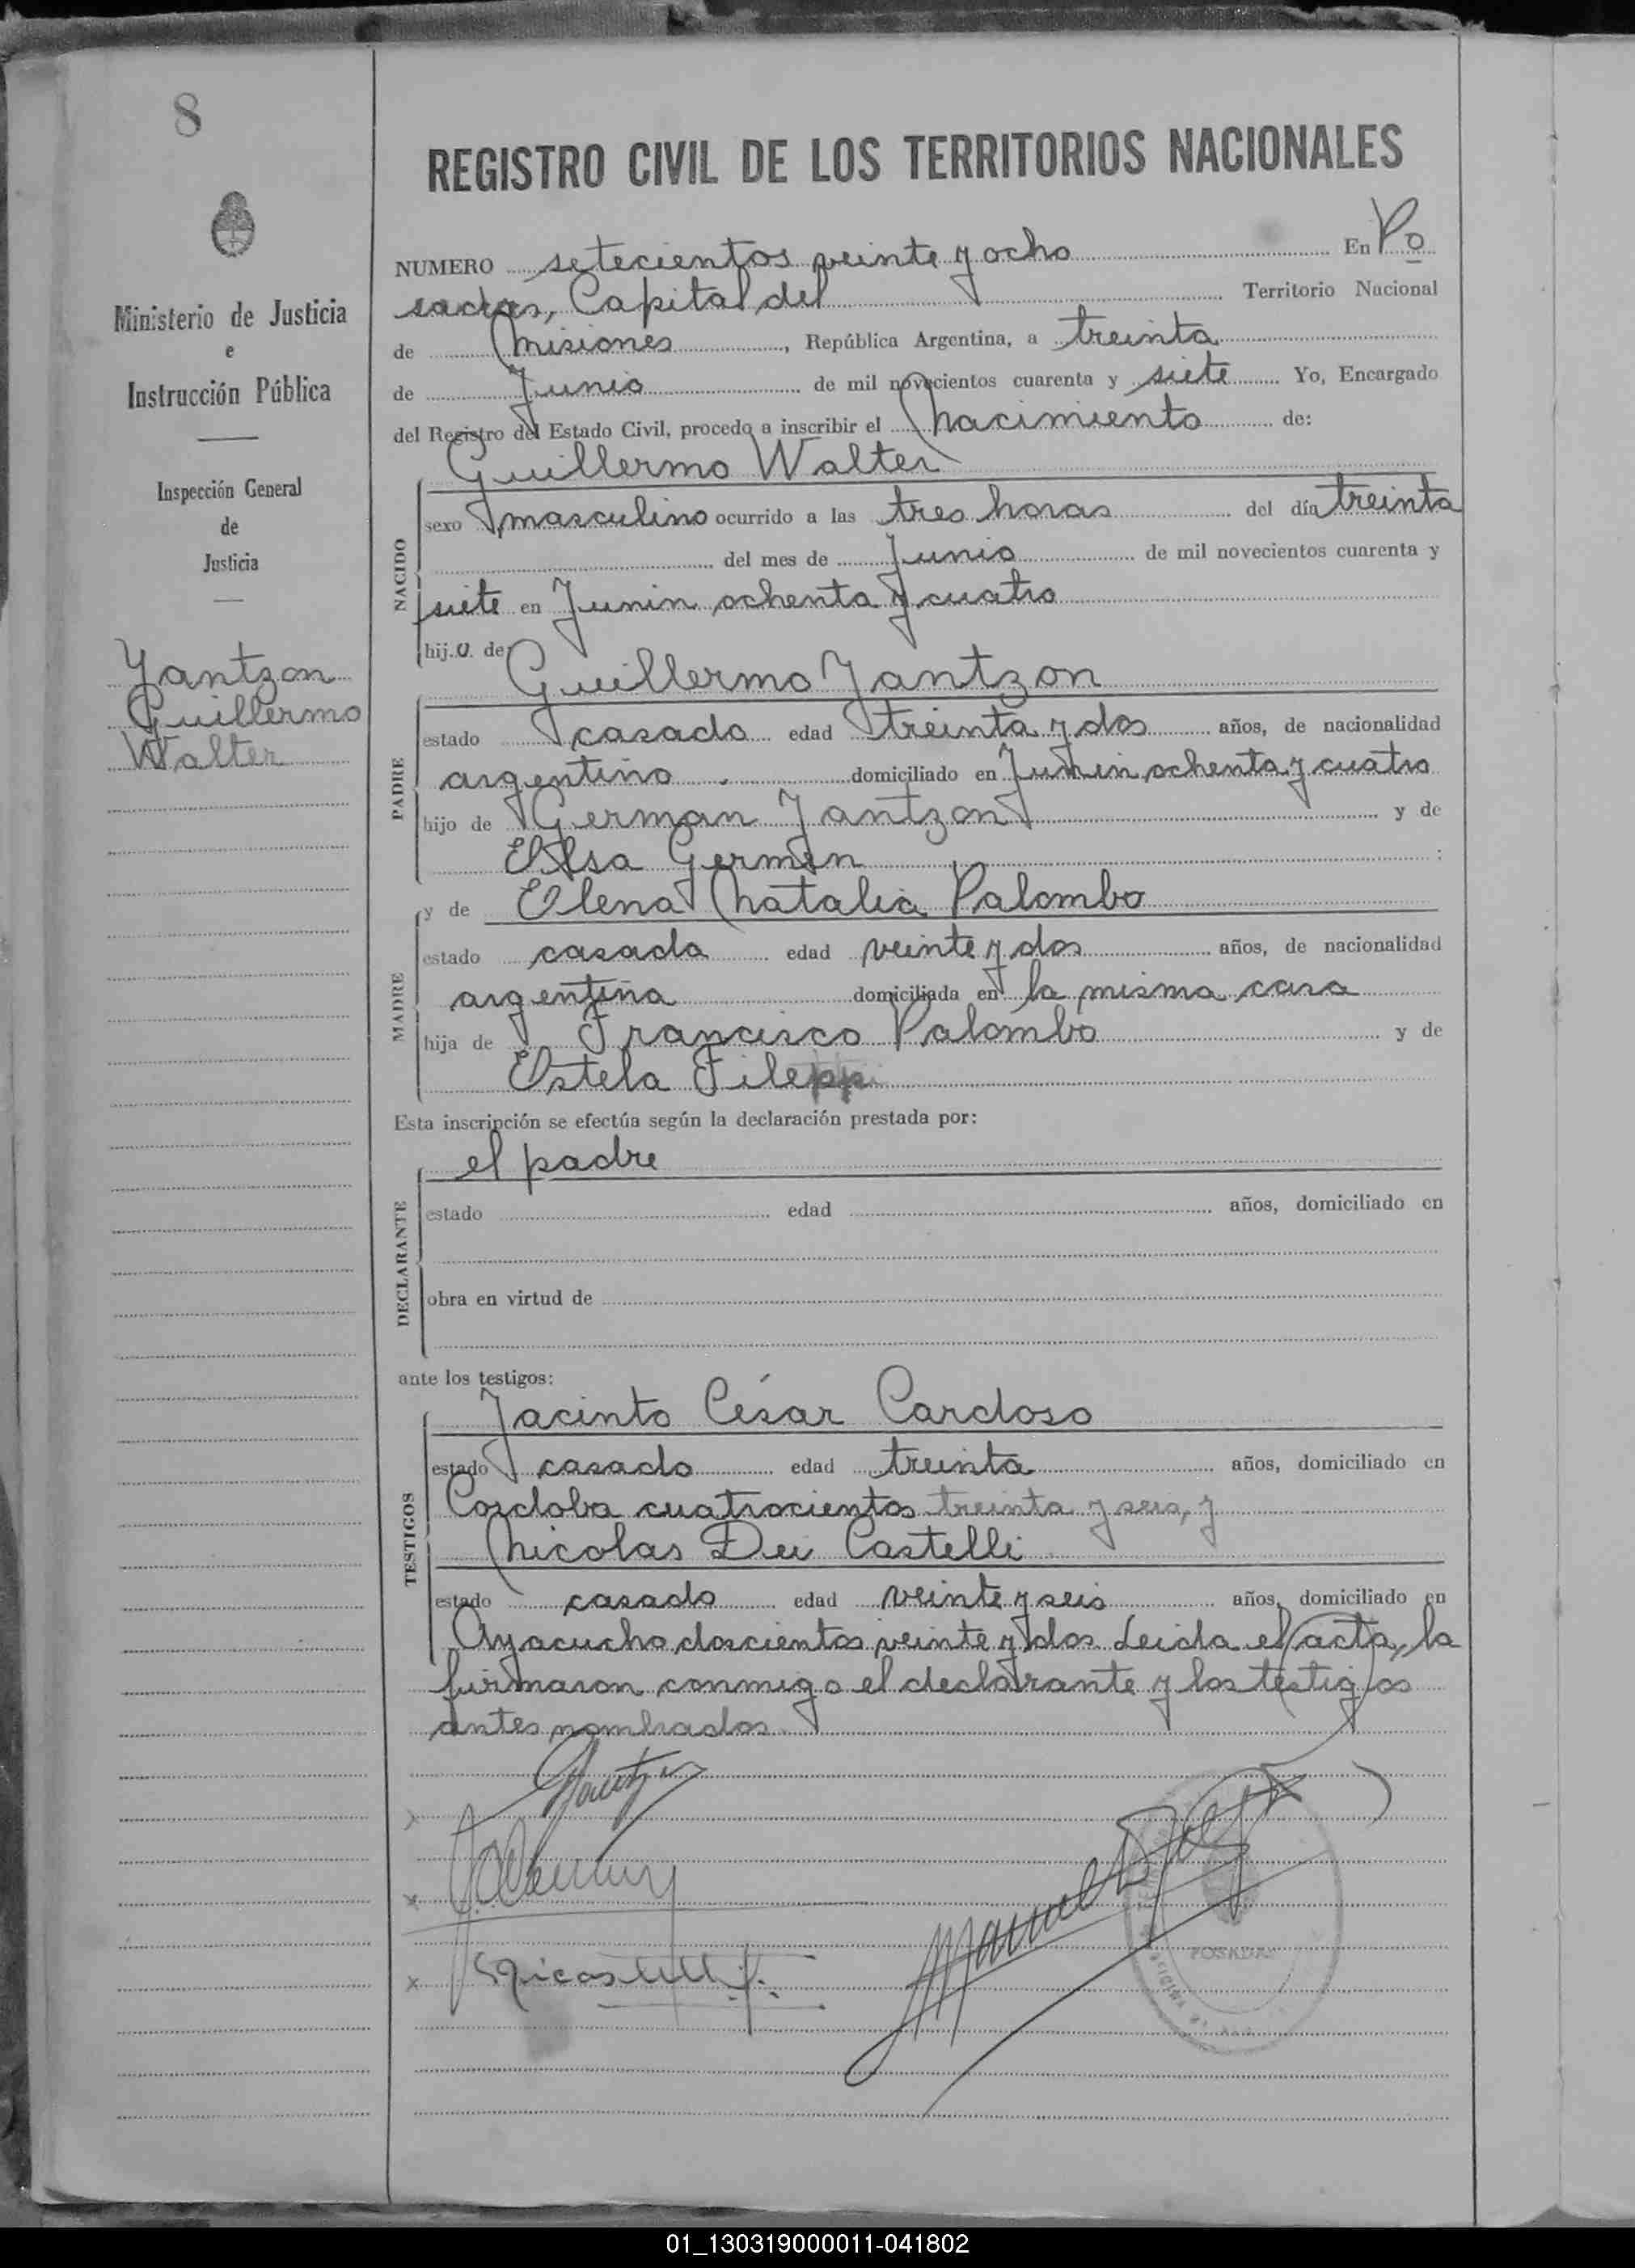 8
Ministerio de Justicia
e
Instrucción Pública
Inspección General
de
Justicia
Yantzon
Guillermo
Walter
REGISTRO CIVIL DE LOS TERRITORIOS NACIONALES
NUMERO setecientos veinte y ocho En Po
sadas, Capital del Territorio Nacional
de Misiones, República Argentina, a treinta
de Junio de mil novecientos cuarenta y siete Yo, Encargado
del Registro del Estado Civil, procedo a inscribir el Nacimiento de:
Guillermo Walter
NACIDO
sexo masculino ocurrido a las tres horas del día treinta
del mes de Junio de mil novecientos cuarenta y
siete en Junin ochenta y cuatro
hijo de:
Guillermo Yantzon
PADRE
estado casado edad treinta y dos años, de nacionalidad
argentino domiciliado en Junin ochenta y cuatro
hijo de German Yantzon y de
Elsa Germen
MADRE
y de Elena Natalia Palombo
estado casada edad veinte y dos años, de nacionalidad
argentina domiciliada en la misma casa
hija de Francisco Palombo y de
Estela Fileppi
Esta inscripción se efectúa según la declaración prestada por:
el padre
DECLARANTE
estado edad años, domiciliado en
obra en virtud de
ante los testigos:
Jacinto César Cardoso
TESTIGOS
estado casado edad treinta años, domiciliado en
Cordoba cuatrocientos treinta y seis, y
Nicolas Dei Castelli
estado casado edad veinte y seis años, domiciliado en
Ayacucho doscientos veinte y dos Leida el acta, la
firmaron conmigo el declarante y los testigos
antes nombrados.
POSADAS
01_130319000011-041802